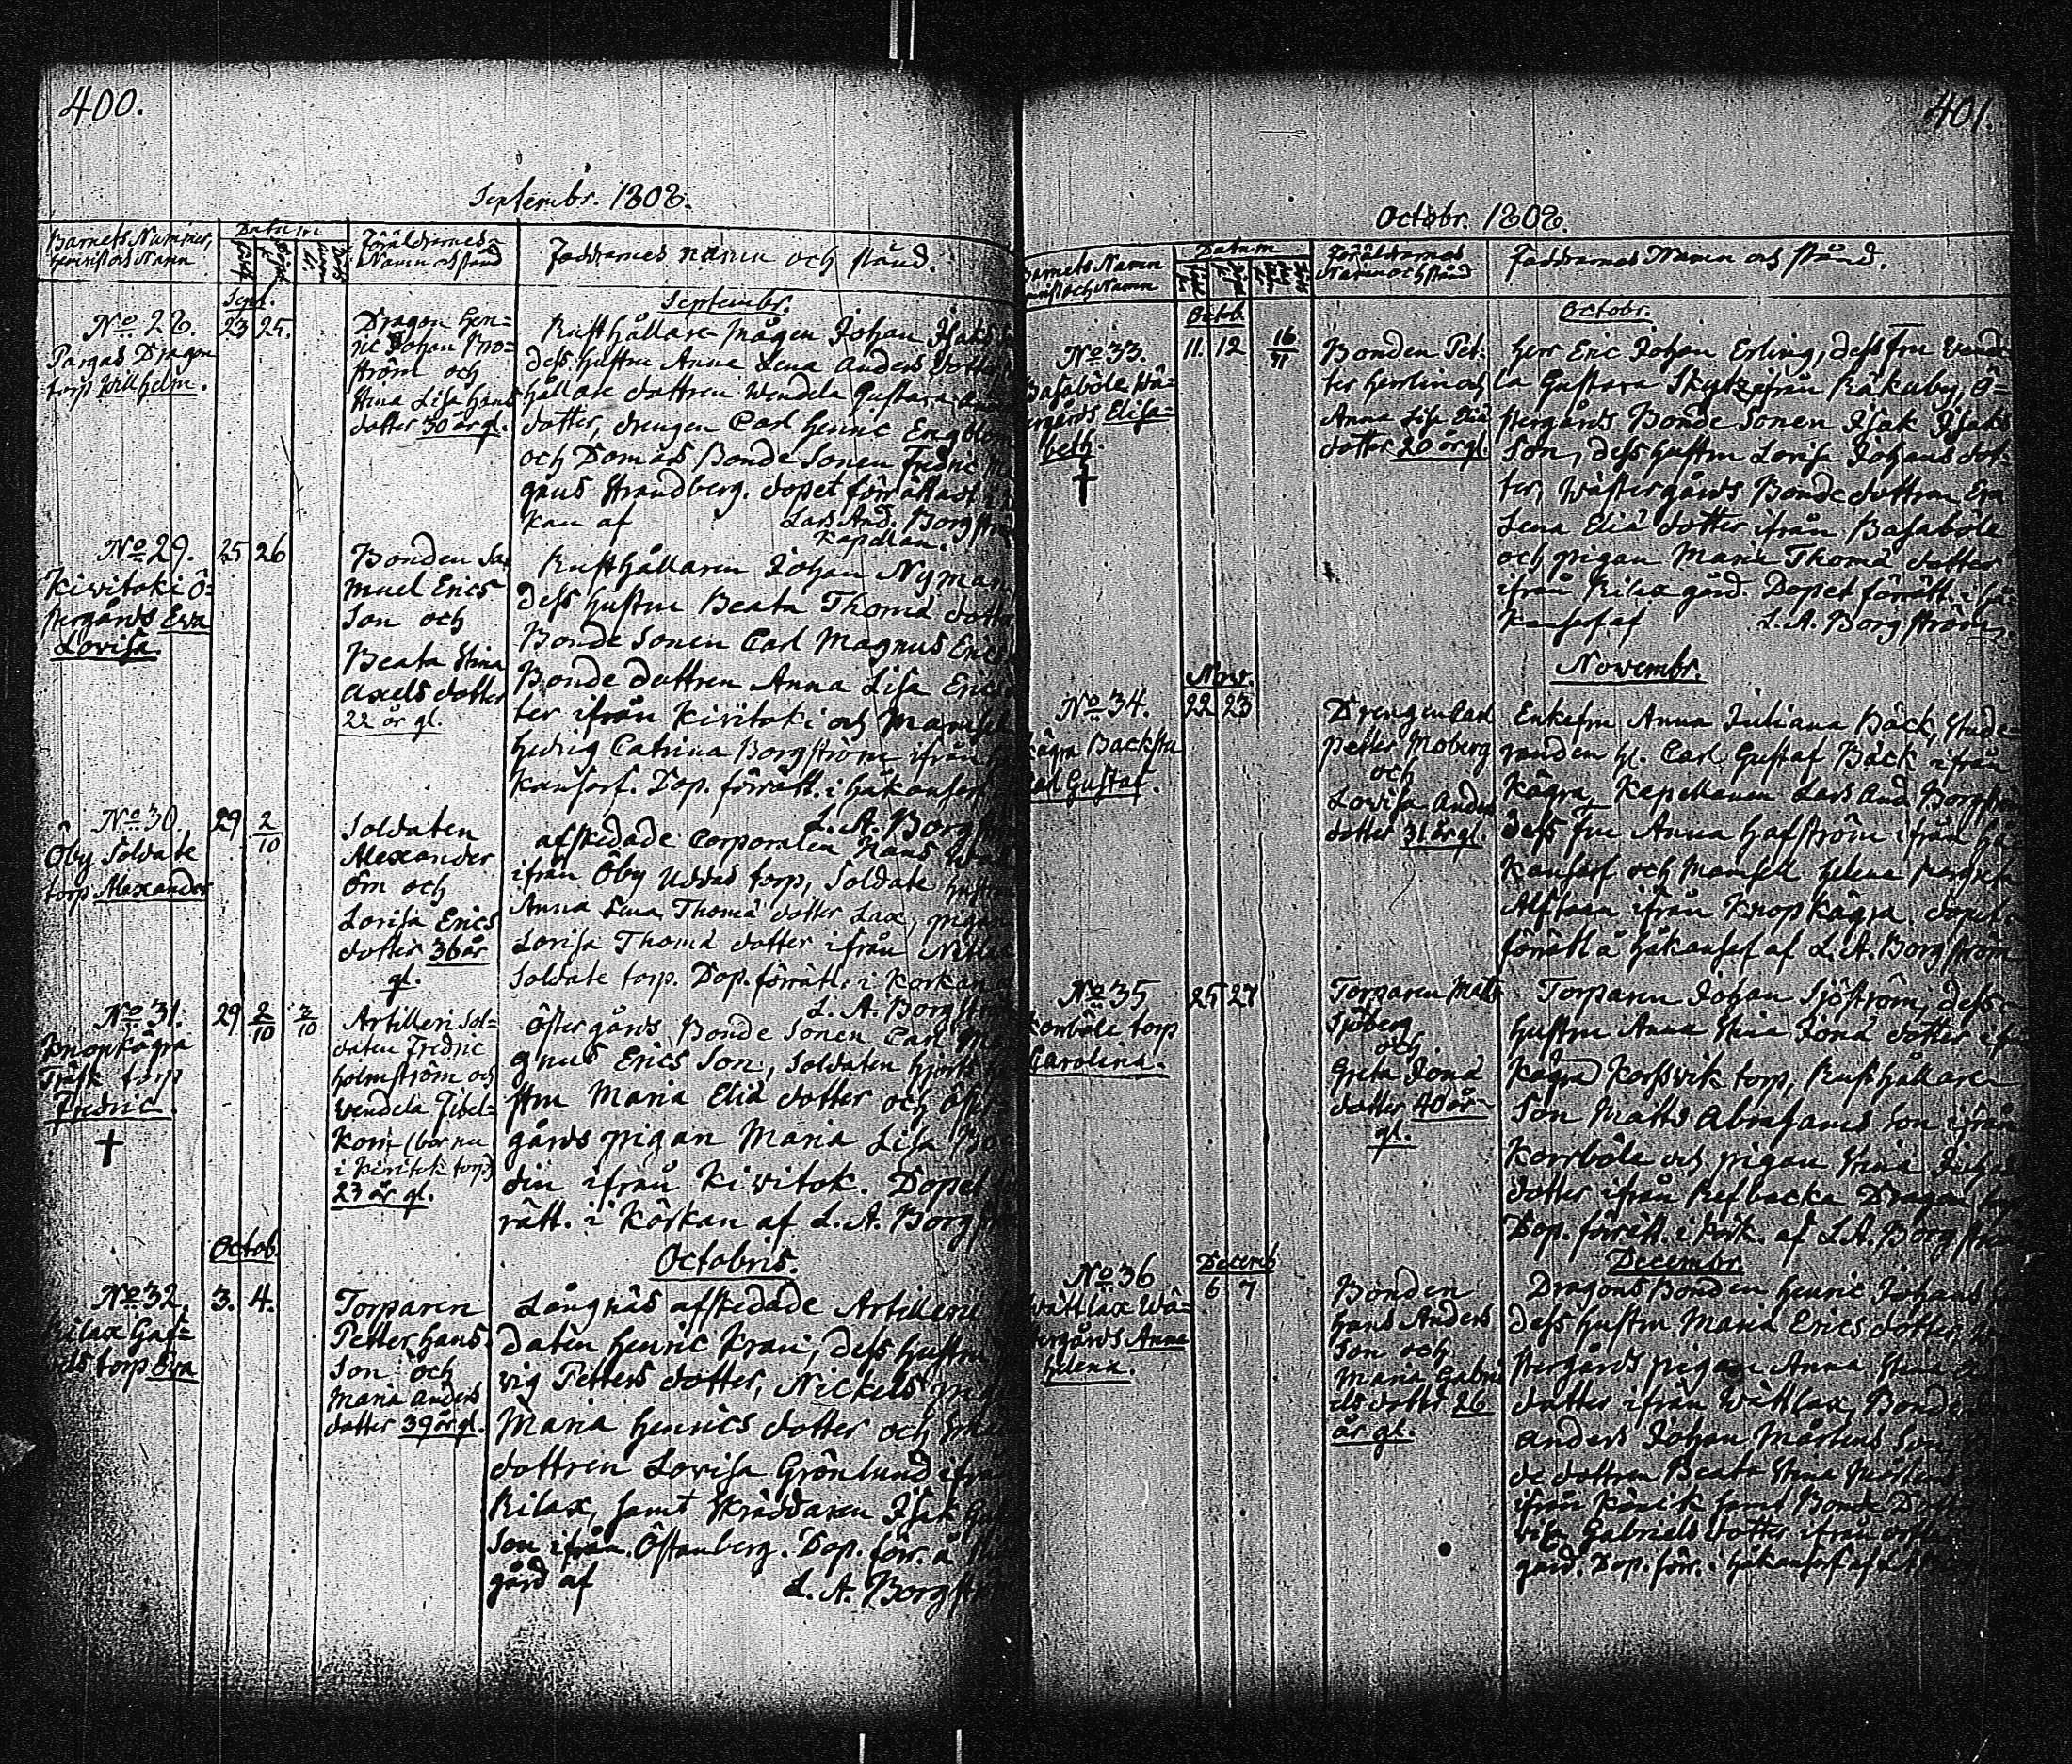 400.
Septembr. 1808.
Barnets Nummer,
hemvist och Namn
Datum
Föräldrarnes
Namn och stånd
Faddrarnes namn och stånd.
Sept.
Septembr.
No 28. 23 25.
Pargas Dragon
torp Wilhelm.
Dragon Hen=
ric Johan Bro=
ström och
Stina Lisa Hans
dotter 30 år gl.
Rusthållare mågen Johan Isaks
dess hustru Anna Lena Anders dotter
hållare dottren Wendela Gustava
dotter, drengen Carl Henric Engblom
och Domars Bonde Sonen Fredric
gnus Strandberg. dopet förrättast i
kan af Lars And. Borgström
Kapellan.
No 29. 25 26
Kiwitoki Ö=
stergårds Ewa
Lovisa.
Bonden Sa
muel Erics
Son och
Beata Stina
Axels dotter
22 år gl.
Rusthållaren Johan Nyman
dess hustru Beata Thomä dotter
Bonde Sonen Carl Magnus Erics
Bonde dottren Anna Lisa Erics
ter ifrån Kivitoki och Mamsell
Hedvig Catrina Borgström ifrån
kansarf. Dop. förrätt. i Håkansarf
L. A. Borgst
No 30. 29 2/10
Öby Soldate
torp Alexander
Soldaten
Alexander
Örn och
Lovisa Erics
dotter 36 år
gl.
afskedade Corporalen Hans
ifrån Öby Uddas torp, Soldate hustru
Anna Lena Thomä dotter Lax, pigan
Lovisa Thomä dotter ifrån
Soldate torp. Dop. förrätt. i Körkan
L. A. Borgström
No 31. 29 2/10 3/10
Knopkägra
Träsk torp
Fredric.
Artilleri Sol=
daten Fredric
Holmström och
Wendela Fibel=
korn (bor nu
i Kivitok torp)
23 år gl.
Östergårds Bonde Sonen Carl Ma
gnus Erics Son, Soldaten Hjorts
stru Maria Eliä dotter och Öster=
gårds pigan Maria Lisa
din ifrån Kivitok. Dopet
rätt. i Körkan af L. A. Borgström
Octob.
Octobris.
No 32. 3. 4.
Rilax
torp Eva
Torparen
Petter Hans
Son och
Maria Anders
dotter 39 år gl.
Långnäs afskedade Artilleri
daten Henric Kran, dess hustru
vig Petters dotter, Nickels
Maria Henrics dotter och
dottren Lovisa Grönlund ifrån
Rilax, samt Skräddaren Isak
Son ifrån Östanberg. Dop. förr. å
gård af L. A. Borgström
401.
Octobr. 1808.
Barnets Namn
hemvist och Namn
Datum
Föräldrarnas
Namn och stånd
Faddrarnas Namn och stånd.
Octob.
Octobr.
No 33. 11. 12 16/11
Basaböle Wä=
stergårds Elisa=
beth.
Bonden Pet=
ter Herrlin och
Anna Lisa Eliä
dotter 20 år gl.
Herr Eric Johan Erling, dess fru Wende
la Gustava Skytze ifrån Räkuby, Ö=
stergårds Bonde Sonen Isak Isaks
Son, dess hustru Lovisa Johans dot=
ter, Wästergårds Bonde dottren Eva
Lena Eliä dotter ifrån Basaböle
och pigan Maria Thomä dotter
ifrån Rilax gård. Dopet förrätt. i Hå=
kansarf af L. A. Borgström.
Novembr.
Nov.
No 34. 22 23
Kägra Backstu
Carl Gustaf.
Drengen Carl
Petter Moberg
och
Lovisa Anders
dotter 31 år gl.
Enkefru Anna Juliana Bäck, Stude
randen hl. Carl Gustaf Bäck ifrån
Kägra, Kapellanen Lars And. Borgström
dess fru Anna Hafström ifrån Hå=
kansarf och Mamsell Helena Margreta
Alftan ifrån Knopkägra. dopet
förätt å Håkansarf af L. A. Borgström
No 35 25 27
Korrböle torp
Carolina.
Torparen Matts
Sjöberg
och
Greta Jonä
dotter 40 år
gl.
Torparen Johan Sjöström, dess
hustru Anna Stina Jonä dotter ifrån
Kägra Korsvik torp, Rusthållare
Son Matts Abrahams Son ifrån
Korrböle och pigan Stina Johans
dotter ifrån Refbacka Dragon torp
Dop. förrätt. i Kyrk. af L. A. Borgström
Decembr.
Decemb
No 36 6 7
Wättlax Wä=
stergårds Anna
Helena.
Bonden
Hans Anders
Son och
Maria Gabri
els dotter 26
år gl.
Dragons Bonden Henric Johans
dess hustru Maria Erics dotter,
stergårds pigan Anna Stina
dotter ifrån Wättlax, Bonde
Anders Johan Mårtens Son,
de dottren Beata Stina Mårtens
ifrån Könik samt Bonde
Gabriels dotter ifrån
gård. Dop. förr. i Håkansarf af L. A.